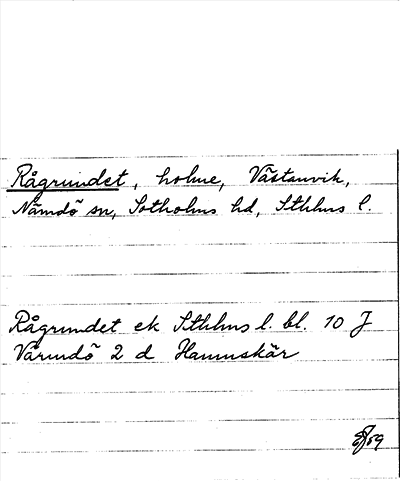 Rågrundet, holme, Västanvik,
Nämdö sn, Sotholms hd, Sthlms l.
Rågrundet ek Sthlms l. bl. 10 J
Värmdö 2 d Hamnskär